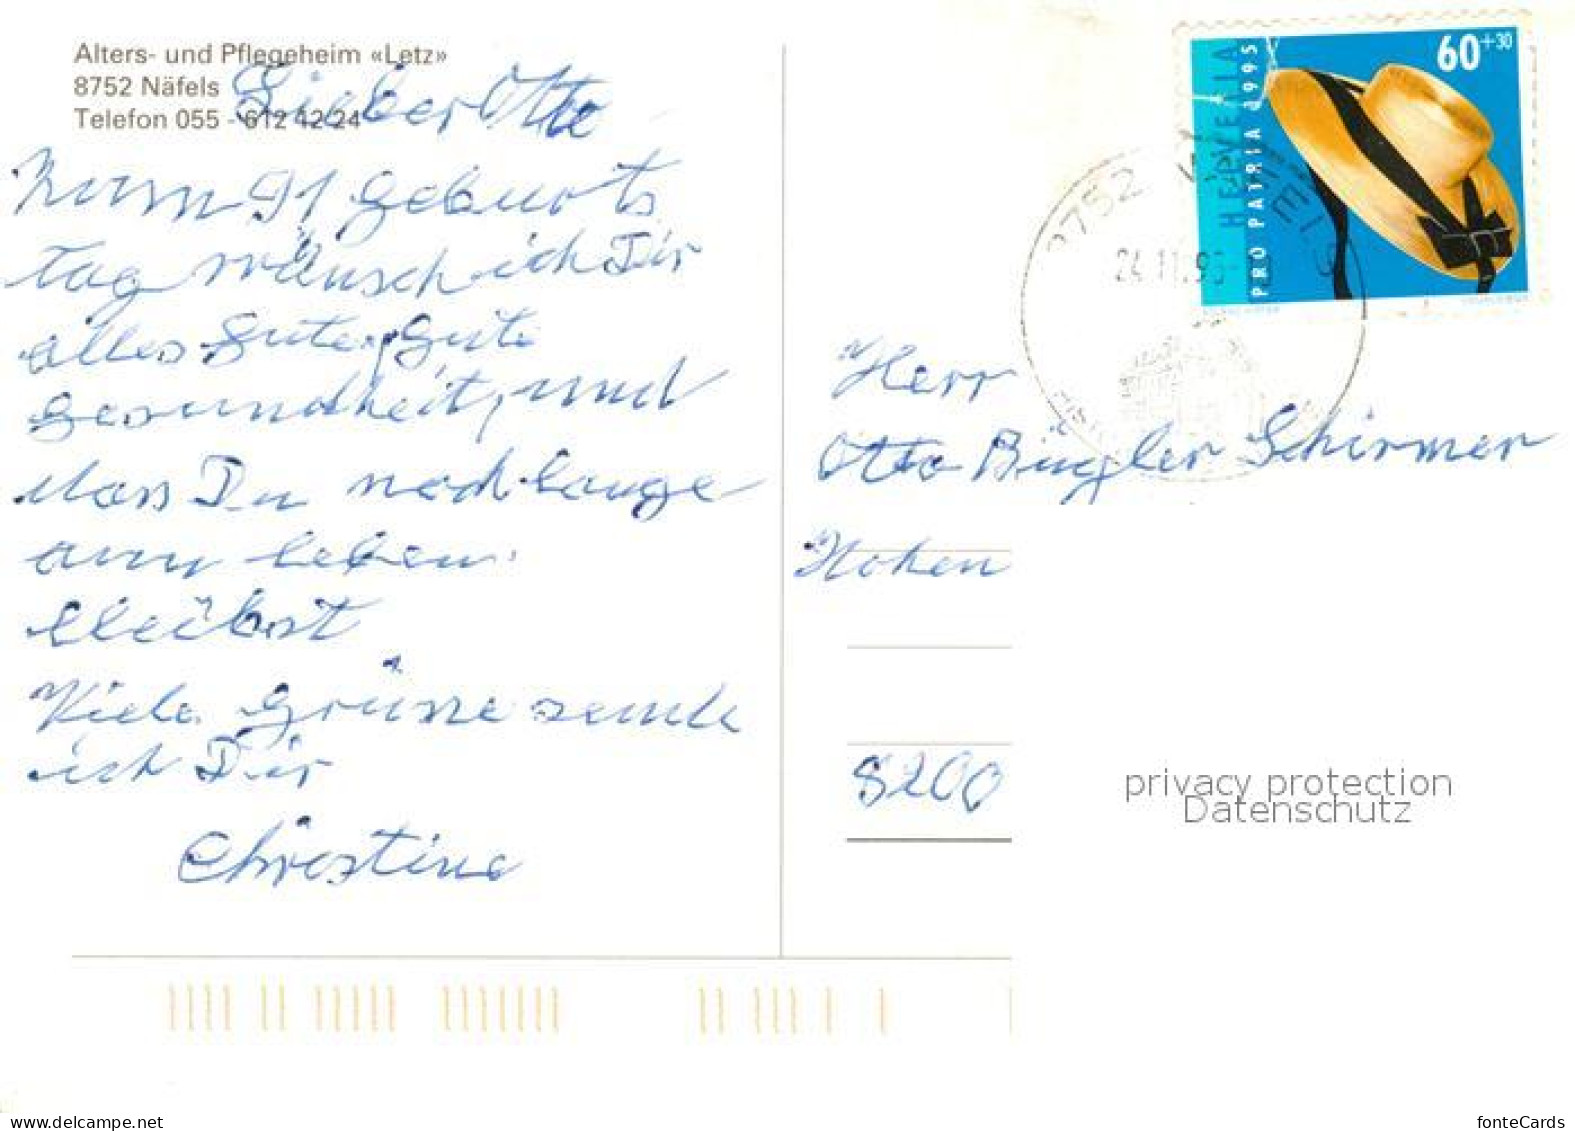 Alters- und Pflegeheim «Letz»
8752 Näfels
Telefon 055 - 612 12 24
Lieber Otto
Zum 91 geburts
tag wünsch ich Dir
alles gute, gute
gesundheit, und
dass Du noch lange
am leben
bleibst
Viele grüsse sende
ich Dir
Christine
60+30
HELVETIA
PRO PATRIA 1995
8752 NÄFELS
24.11.9
Herr
Otto Bügler Schirmer
Hohen
8200
privacy protection
Datenschutz
www.delcampe.net
fonteCards